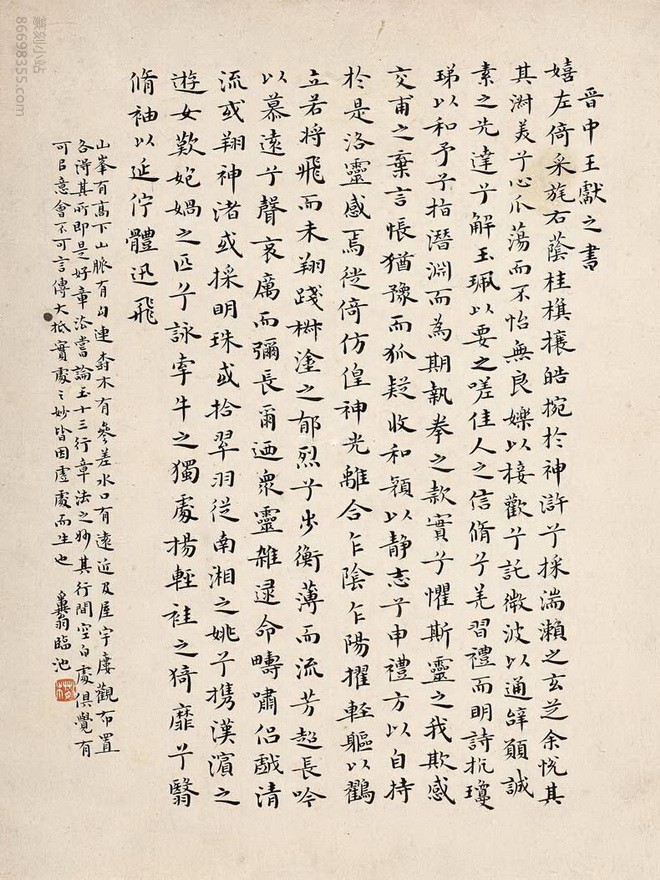 晋中王獻之書
嬉左倚采旄右蔭桂旗攘皓捥於神滸兮採湍瀨之玄芝余悅其
其淑美兮心爪蕩而不怡無良媒以接歡兮託微波以通辝願誠
素之先達兮解玉珮以要之嗟佳人之信脩兮羌習禮而明詩抗瓊
珶以和予兮指潛淵而為期執拳之款實兮懼斯靈之我欺感
交甫之棄言悵猶豫而狐疑收和顏以静志兮申禮方以自持
於是洛靈感焉徙倚仿偟神光離合乍陰乍陽擢軽軀以鸖
立若將飛而未翔踐椒塗之郁烈兮步衡薄而流芳超長吟
以慕遠兮聲哀厲而彌長爾迺衆靈雑逯命疇嘯侣戲清
流或翔神渚或採明珠或拾翠羽従南湘之姚兮携漢濱之
遊女歎炮媧之匹兮詠牽牛之獨處揚輕袿之猗靡兮翳
脩袖以延佇體迅飛
山峯有高下山脈有勾連森木有參差水口有遠近及屋宇廔觀布置
各得其所即是好章法嘗論玉十三行章法之妙其行間空白處俱覺有
可㠯意會不可言傳大抵實處之妙皆因虛處而生也 翁臨池
篆刻小站
86698355.com